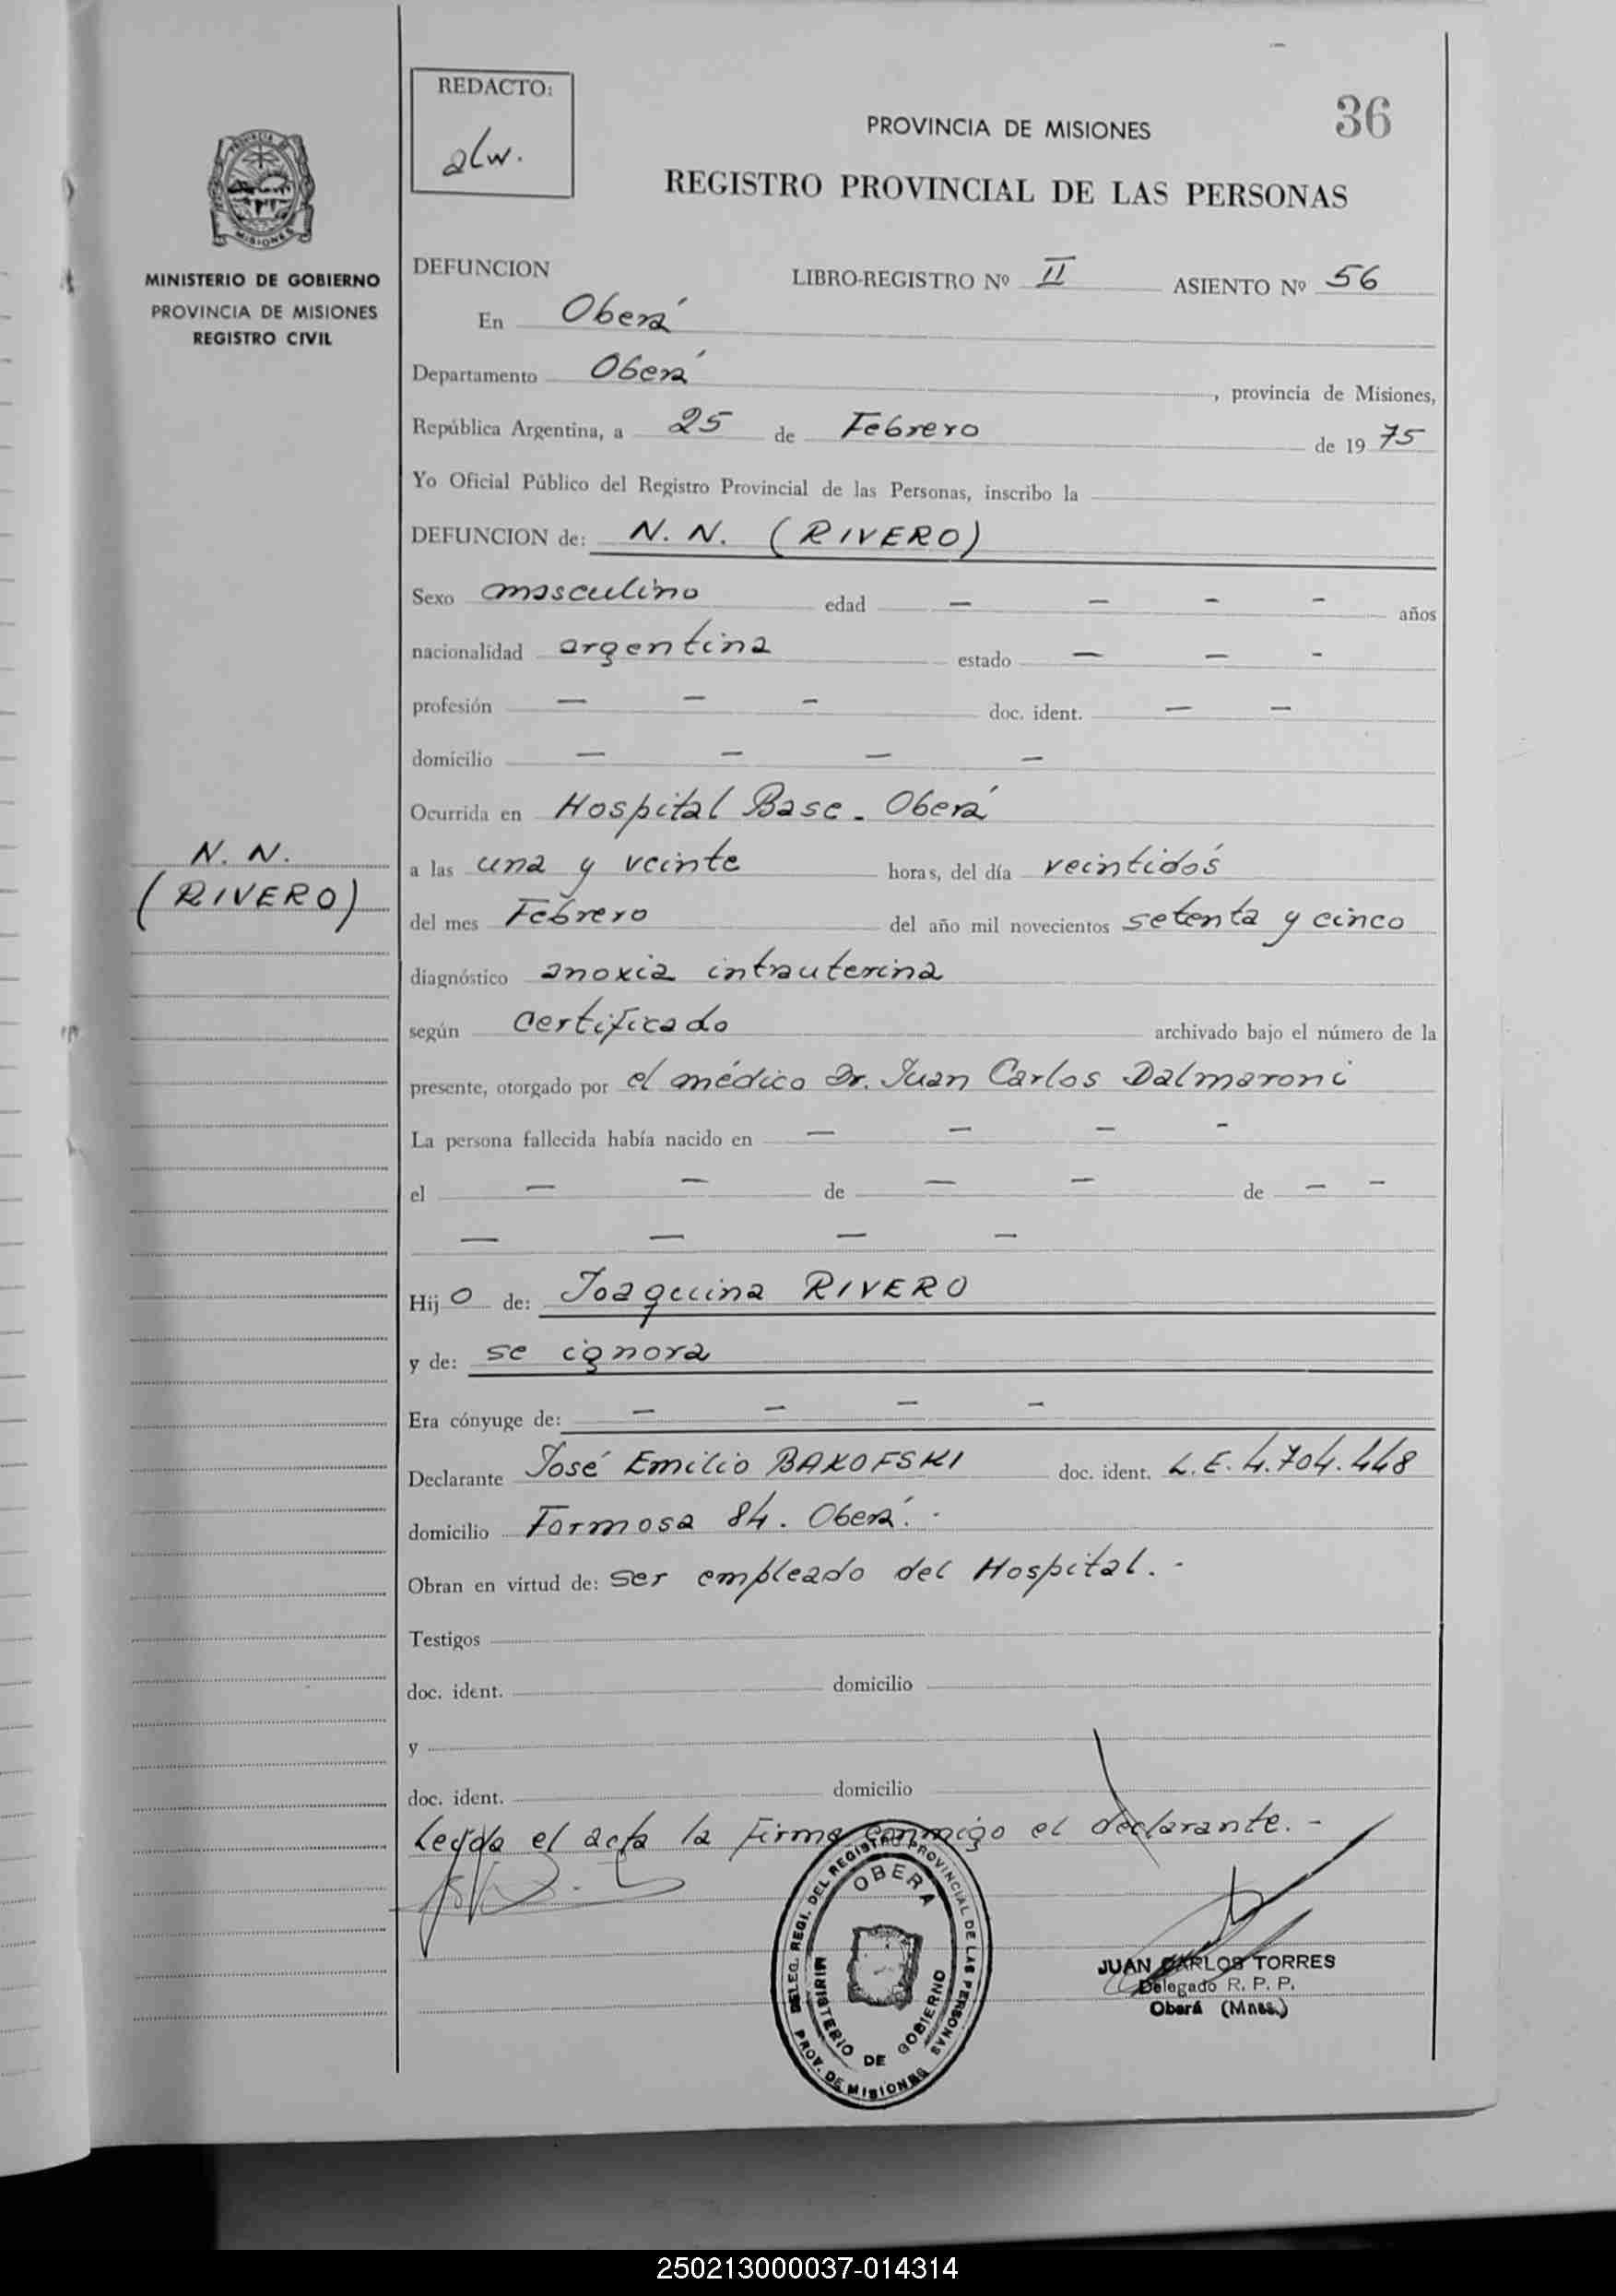 REDACTO:
alw.
PROVINCIA DE MISIONES
36
REGISTRO PROVINCIAL DE LAS PERSONAS
PROVINCIA DE
MISIONES
MINISTERIO DE GOBIERNO
PROVINCIA DE MISIONES
REGISTRO CIVIL
DEFUNCION LIBRO-REGISTRO Nº II ASIENTO Nº 56
En Oberá
Departamento Oberá, provincia de Misiones,
República Argentina, a 25 de Febrero de 1975
Yo Oficial Público del Registro Provincial de las Personas, inscribo la
DEFUNCION de: N. N. (RIVERO)
Sexo masculino edad — — — — años
nacionalidad argentina estado — — —
profesión — — — doc. ident. — —
domicilio — — — —
Ocurrida en Hospital Base - Oberá
N. N.
(RIVERO)
a las una y veinte horas, del día veintidós
del mes Febrero del año mil novecientos setenta y cinco
diagnóstico anoxia intrauterina
según certificado archivado bajo el número de la
presente, otorgado por el médico Dr. Juan Carlos Dalmaroni
La persona fallecida había nacido en — — — —
el — — de — — de — —
— — — —
Hijo de: Joaquina RIVERO
y de: se ignora
Era cónyuge de: — — — —
Declarante José Emilio BAKOFSKI doc. ident. L.E. 4.704.448
domicilio Formosa 84. Oberá.-
Obran en virtud de: ser empleado del Hospital.-
Testigos
doc. ident. domicilio
y
doc. ident. domicilio
Leída el acta la firma conmigo el declarante.-
DELEG. REGI. DEL REGISTRO PROVINCIAL DE LAS PERSONAS
OBERA
MINISTERIO DE GOBIERNO
PROV. DE MISIONES
JUAN CARLOS TORRES
Delegado R. P. P.
Oberá (Mnes.)
250213000037-014314